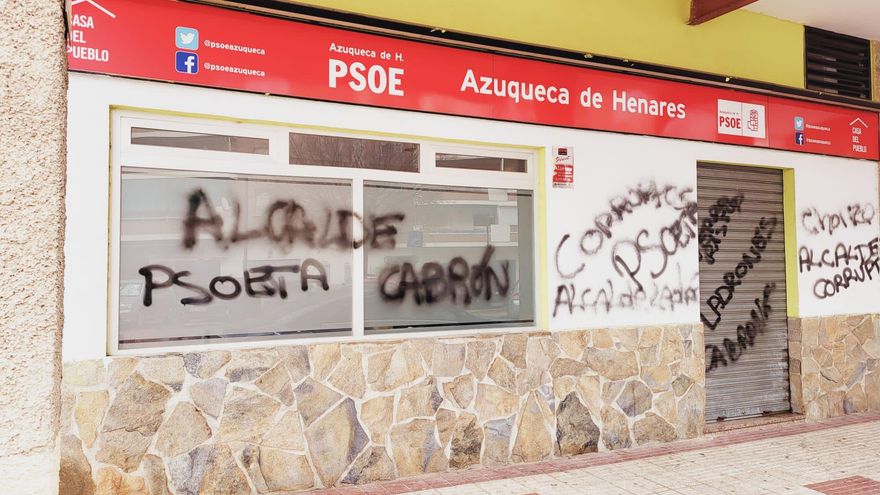 CASA
DEL
PUEBLO
@psoeazuqueca
@psoeazuqueca
Azuqueca de H.
PSOE
Azuqueca de Henares
PSOE
CASA
DEL PUEBLO
ALCALDE
PSOETA CABRÓN
CORRUPTOS
PSOETA
LADRONES
CABRÓN
CHORIZO
ALCALDE
CORRUPT